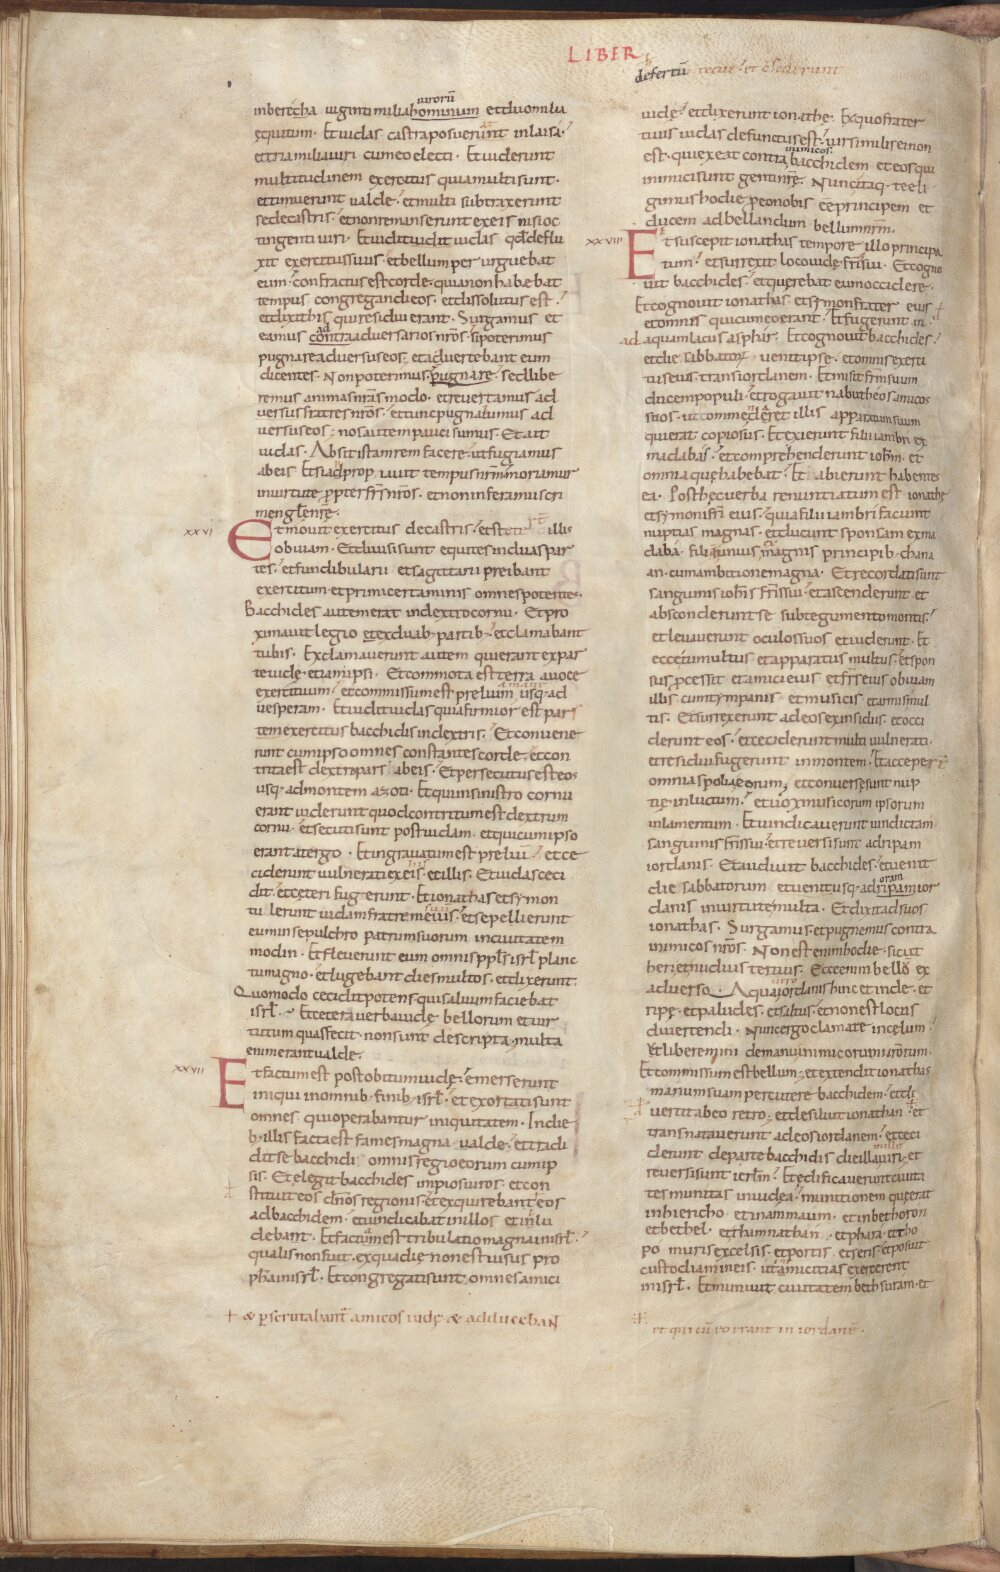 LIBER
defertū tecue et cſederunt
uirorū
inberetha uiginti milia hominum et duo milia
equitum · Et iudas castra posuerunt in laisa ·
et tria milia uiri cum eo electi · Et uiderunt
multitudinem exercitus quia multi sunt ·
et timuerunt ualde · et multi subtraxerunt
se de castris · et non remanserunt ex eis nisi oc
tingenti uiri · Et uidit iudas qđ deflu
xit exercitus suus · et bellum perurguebat
eum · confractus est corde · quia non habebat
tempus congregandi eos · et dissolutus est ·
et dixit his qui residui erant · Surgamus et
ad
eamus contra aduersarios nros · si poterimus
pugnare aduersus eos · et aduertebant eum
dicentes · Non poterimus pugnare · sed libe
remus animas nras modo · et reuertamus ad
uersus fratres nros · et tunc pugnabimus ad
uersus eos · nos autem pauci sumus · Et ait
iudas · Absit istam rem facere · ut fugiamus
ab eis · Et si adprop iauit tempus nrm moriamur
in uirtute ppter frs nros · et non inferamus cri
men glę nrę ·
xxvi
Et mouit exercitus de castris · et stet illis
obuiam · Et diuisi sunt equites in duas par
tes · et fundibularii et sagittarii preibant
exercitum · et primi certaminis omnes potentes ·
Bacchides autem erat in dextro cornu · Et pro
ximauit legio ex duab partib · et clamabant
tubis · Exclamauerunt autem qui erant ex par
te iudę · etiam ipsi · Et commota est terra a uoce
a mane
exercituum · et commissum est prelium usq ad
uesperam · Et uidit iudas quia firmior est pars
tem exercitus bacchidis in dextris · Et conuene
runt cum ipso omnes constantes corde · et con
trita est dextra pars ab eis · Et persecutus est eos
usq ad montem azoti · Et qui in sinistro cornu
erant uiderunt quod contritum est dextrum
cornu · et secuti sunt post iudam · et qui cum ipso
erant a tergo · Et ingrauatum est preliū · et ce
ciderunt uulnerati ex eis et illis · Et iudas ceci
dit · et ceteri fugerunt · Et ionathas et symon
tulerunt iudam fratrem eius · et sepellierunt
eum in sepulchro patrum suorum in ciuitatem
modin · Et fleuerunt eum omnis ppls isrl planc
tu magno · et lugebant dies multos · et dixerunt ·
Quomodo cecidit potens qui saluum faciebat
isrl · Et cetera uerba iudę bellorum et uir
tutum quas fecit · non sunt descripta · multa
enim erant ualde ·
xxvii
Et factum est post obitum iudę · emerserunt
iniqui in omnib finib isrl · et exortati sunt
omnes qui operabantur iniquitatem · In die
b illis facta est fames magna ualde · et tradi
dit se bacchidi omnis regio eorum cum ip
sis · Et elegit bacchides impios uiros · et con
stituit eos dnos regionis · et exquirebant eos
ad bacchidem · et uindicabat in illos et inlu
debant · Et facta est tribulatio magna in isrl ·
qualis non fuit · ex qua die non est uisus pro
pha in isrl · Et congregati sunt omnes amici
+ & pscrutabant amicos iudę & adduceban
iudę · et dixerunt ionathę · Ex quo frater
tuus iudas defunctus est · uir similis ei non
inimicos
est · qui exeat contra bacchidem et eos qui
inimici sunt gentis nrę · Nunc itaq te eli
gimus hodie pro eo nobis eē principem et
ducem ad bellandum bellum nrm ·
xxviii
Et suscepit ionathas tempore illo principa
tum · et surrexit loco iudę fris sui · Et cogno
uit bacchides · et querebat eum occidere ·
Et cognouit ionathas et symon frater eius
et omnis qui cum eo erant · Et fugerunt in
ad aquam lacus asphar · Et cognouit bacchides ·
et die sabbatorum uenit ipse · et omnis exerci
tus eius trans iordanem · Et misit frm suum
ducem populi · et rogauit nabutheos amicos
suos · ut commendaret illis apparatum suum
qui erat copiosus · Et exierunt filii iambri ex
madabas · et comprehenderunt ioħm · et
omnia que habebat · Et abierunt habentes
ea · Post hęc uerba renuntiatum est ionathę
et symoni fri eius · quia filii iambri faciunt
nuptias magnas · et ducunt sponsam ex ma
daba · filiam unius magnis principib chana
an · cum ambitione magna · Et recordati sunt
sanguinis iohis fris sui · et ascenderunt et
absconderunt se sub tegumento montis ·
et leuauerunt oculos suos et uiderunt · Et
ecce tumultus et apparatus multus · et spon
sus pcessit et amici eius et frs eius obuiam
illis cum tympanis et musicis et armis mul
tis · Et surrexerunt ad eos ex insidiis · et occi
derunt eos · et ceciderunt multi uulnerati ·
et residui fugerunt in montem · Et acceperūt
omnia spolia eorum, et conuersę sunt nup
tię in luctum · et uox musicorum ipsorum
in lamentum · Et uindicauerunt uindictam
sanguinis fris sui · et reuersi sunt ad ripam
iordanis · Et audiuit bacchides · et uenit
oram
die sabbatorum et uenit usq ad ripam ior
danis in uirtute multa · Et dixit ad suos
ionathas · Surgamus · et pugnemus contra
inimicos nros · Non est enim hodie sicut
heri et nudius tertius · Ecce enim bellū ex
aduerso · Aqua iordanis hinc et inde · et
ripę · et paludes · et saltus · et non est locus
diuertendi · Nunc ergo clamate in cęlum ·
ut liberemini de manu inimicorum urorum ·
Et commissum est bellum · et extendit ionathas
manum suam percutere bacchidem · et di
uertit ab eo retro · et desiluit ionathan · et
transnatauerunt ad eos iordanem · et ceci
mille
derunt de parte bacchidis die illa uiri · et
reuersi sunt ierlm · Et edificauerunt ciuita
tes munitas in iudęa · munitionem quę erat
in hiericho et in ammaum · et in bethoron
et bethel · et thamnathan · et phara · et tho
po muris excelsis · et portis · et seris · et posuit
custodiam in eis · ut inimicitias exercerent
in isrl · Et muniuit ciuitatem bethsuram · et
et qui cū eo erant in iordanē ·